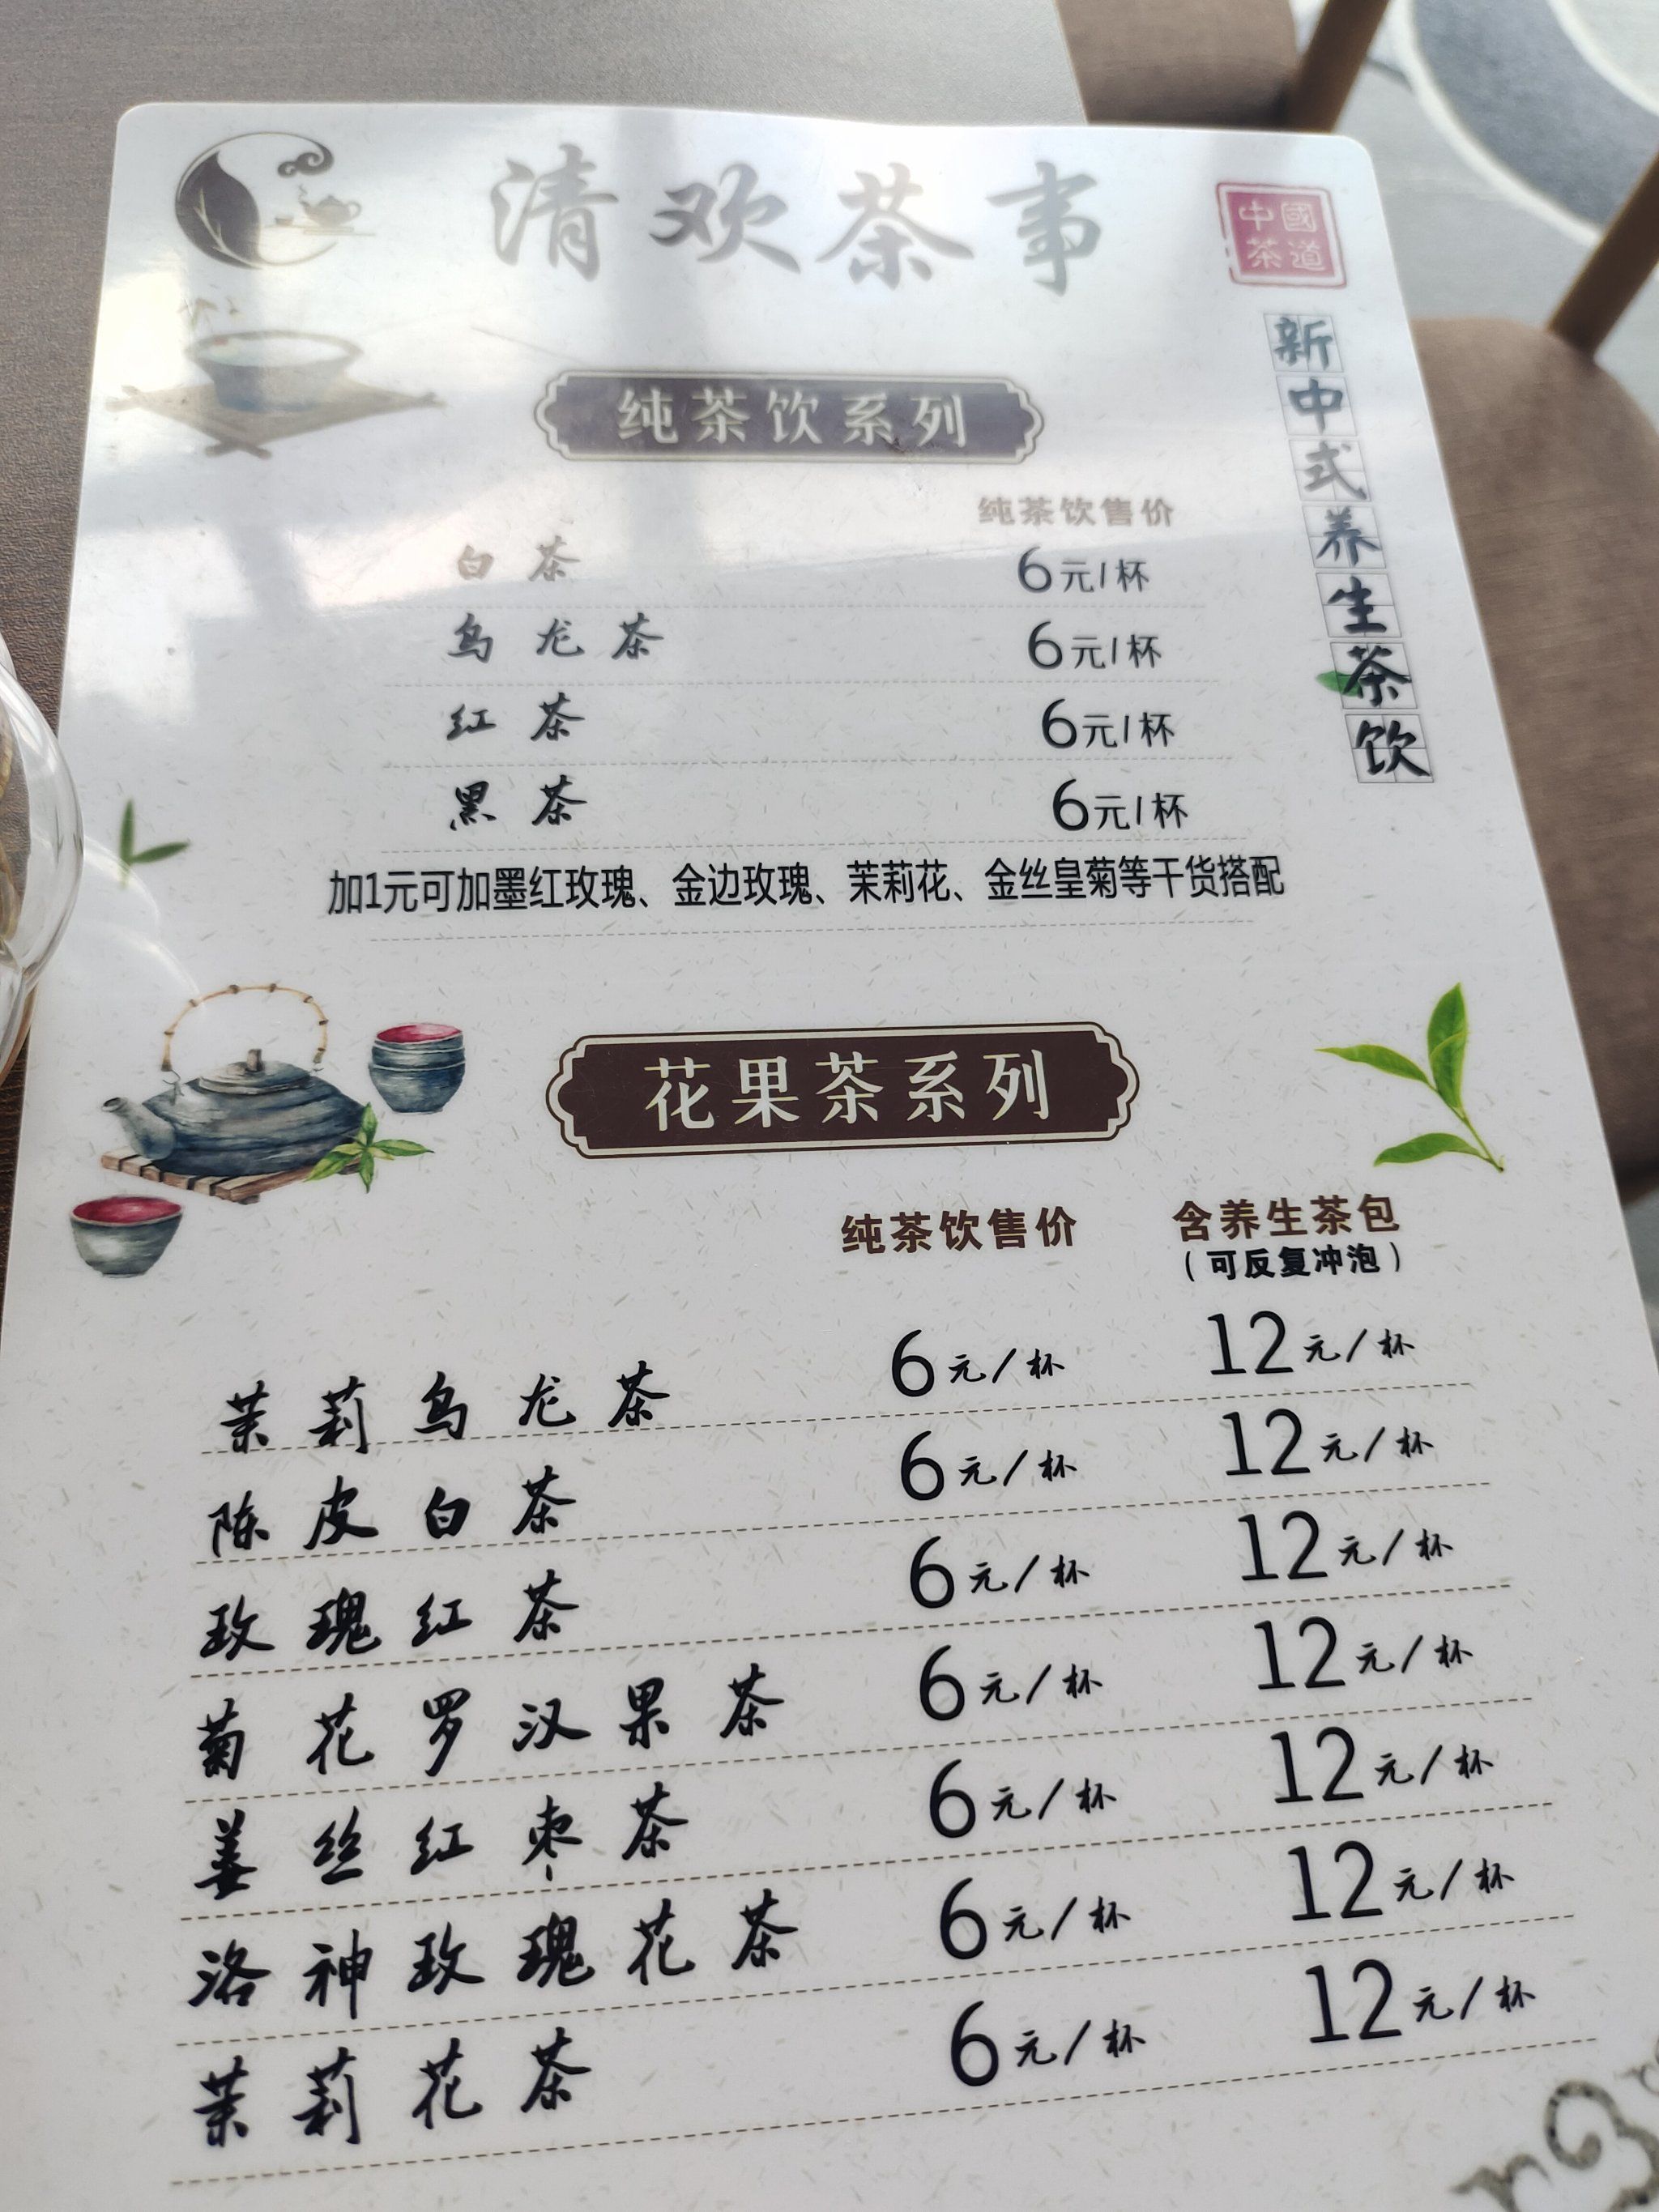 清欢茶事
中國
茶道
新中式养生茶饮
纯茶饮系列
纯茶饮售价
白茶 6元/杯
乌龙茶 6元/杯
红茶 6元/杯
黑茶 6元/杯
加1元可加墨红玫瑰、金边玫瑰、茉莉花、金丝皇菊等干货搭配
花果茶系列
纯茶饮售价 含养生茶包
(可反复冲泡)
茉莉乌龙茶 6元/杯 12元/杯
陈皮白茶 6元/杯 12元/杯
玫瑰红茶 6元/杯 12元/杯
菊花罗汉果茶 6元/杯 12元/杯
姜丝红枣茶 6元/杯 12元/杯
洛神玫瑰花茶 6元/杯 12元/杯
茉莉花茶 6元/杯 12元/杯